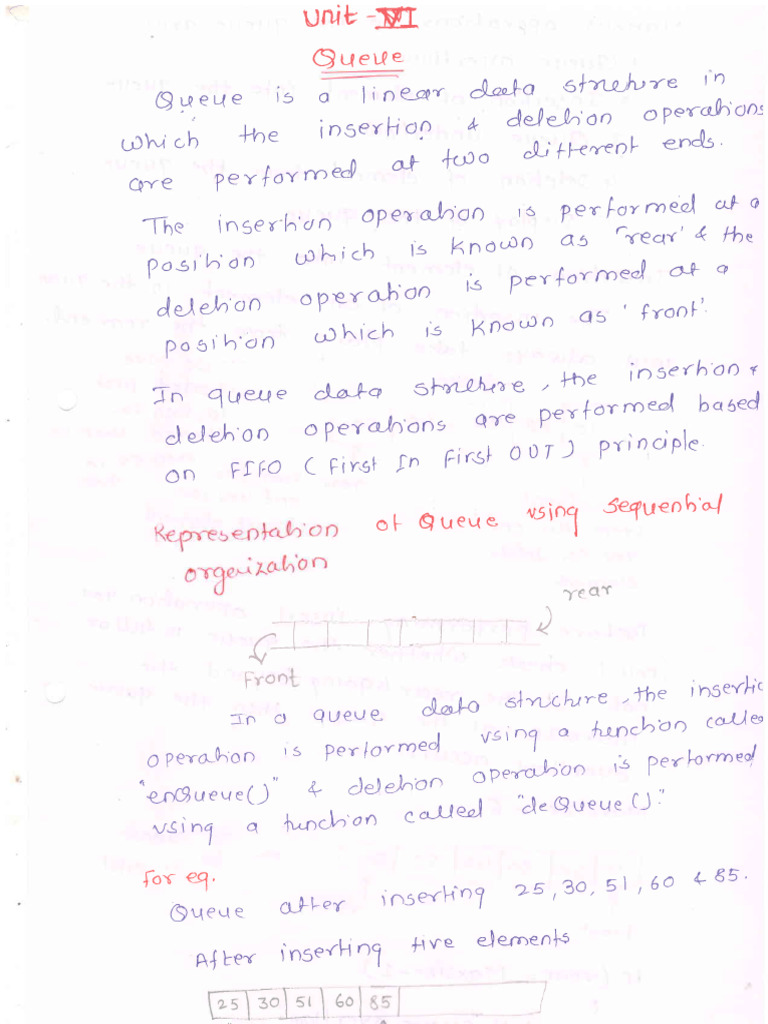 Unit - VI
Queue
Queue is a linear data structure in
which the insertion & deletion operations
are performed at two different ends.
The insertion operation is performed at a
position which is known as 'rear' & the
deletion operation is performed at a
position which is known as 'front'.
In queue data structure, the insertion &
deletion operations are performed based
on FIFO (First In First OUT) principle.
Representation of Queue using Sequential
organization
rear
Front
In a queue data structure the insertio
operation is performed using a function called
"enQueue()" & deletion operation is performed
using a function called "deQueue()".
For eg.
Queue after inserting 25, 30, 51, 60 & 85.
After inserting five elements
25 30 51 60 85